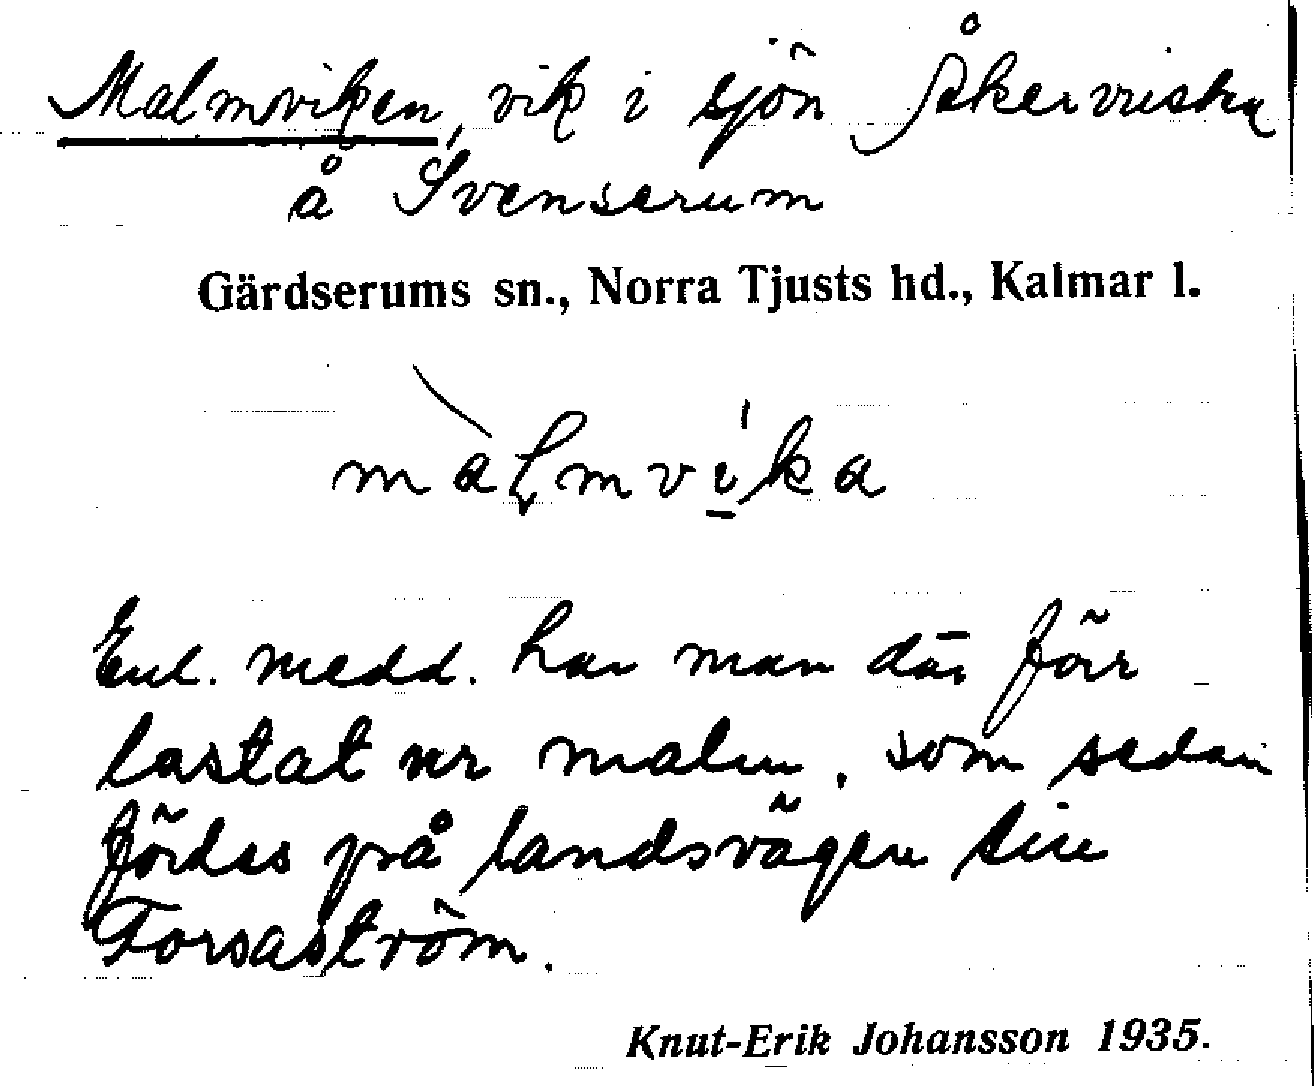 Malmviken, vik i sjön Åkervristen
å Svenserum
Gärdserums sn., Norra Tjusts hd., Kalmar l.
màlmvika
Enl. medd. har man där förr
lastat ur malm, som sedan
fördes på landsvägen till
Forsaström.
Knut-Erik Johansson 1935.